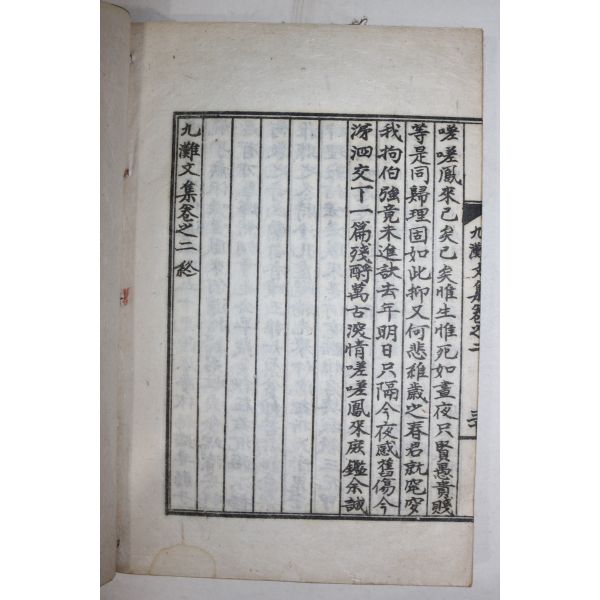 嗟嗟鳳來已矣已矣惟生惟死如晝夜只賢愚貴賤
等是同歸理固如此抑又何悲維歲之春君就窀穸
我拘伯強竟未進訣去年明日只隔今夜感舊傷今
涕泗交下一篇殘酹萬古深情嗟嗟鳳來庶鑑余誠
九灘文集卷之二 終
九灘文集卷之二